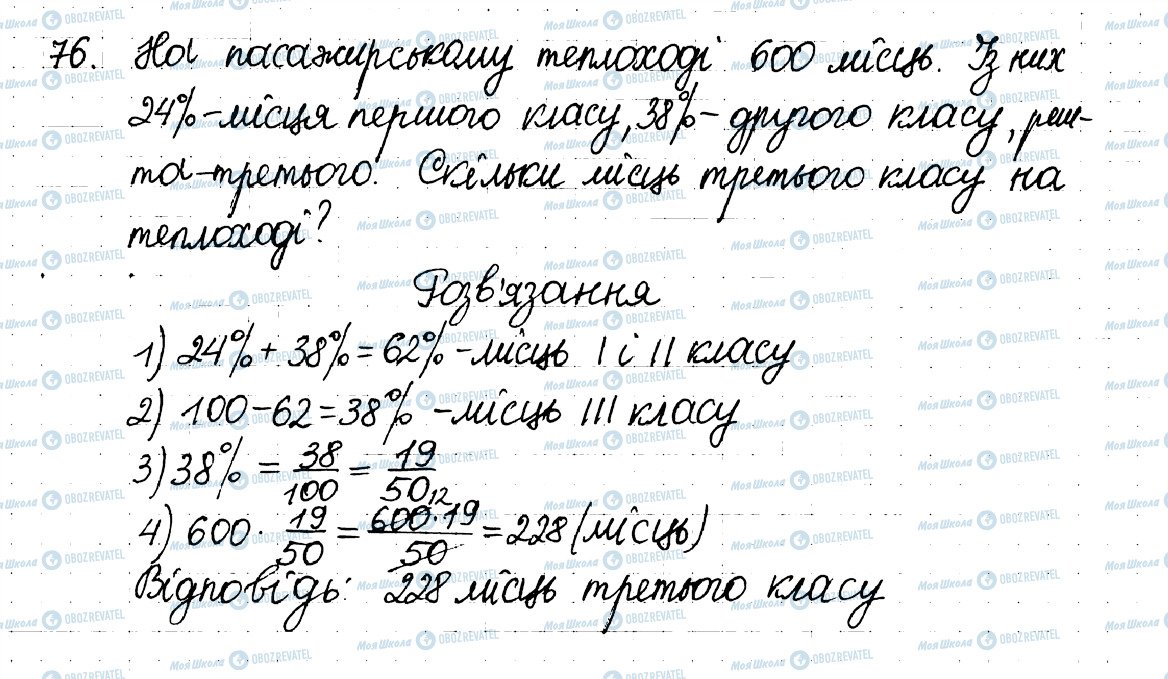 76. На пасажирському теплоході 600 місць. Із них
24% – місця першого класу, 38% – другого класу, реш-
та – третього. Скільки місць третього класу на
теплоході?
Розв'язання
1) 24% + 38% = 62% – місць I і II класу
2) 100 – 62 = 38% – місць III класу
3) 38% = 38/100 = 19/50
4) 600 · 19/50 = 600 12 · 19/50 = 228 (місць)
Відповідь: 228 місць третього класу
МояШкола OBOZREVATEL